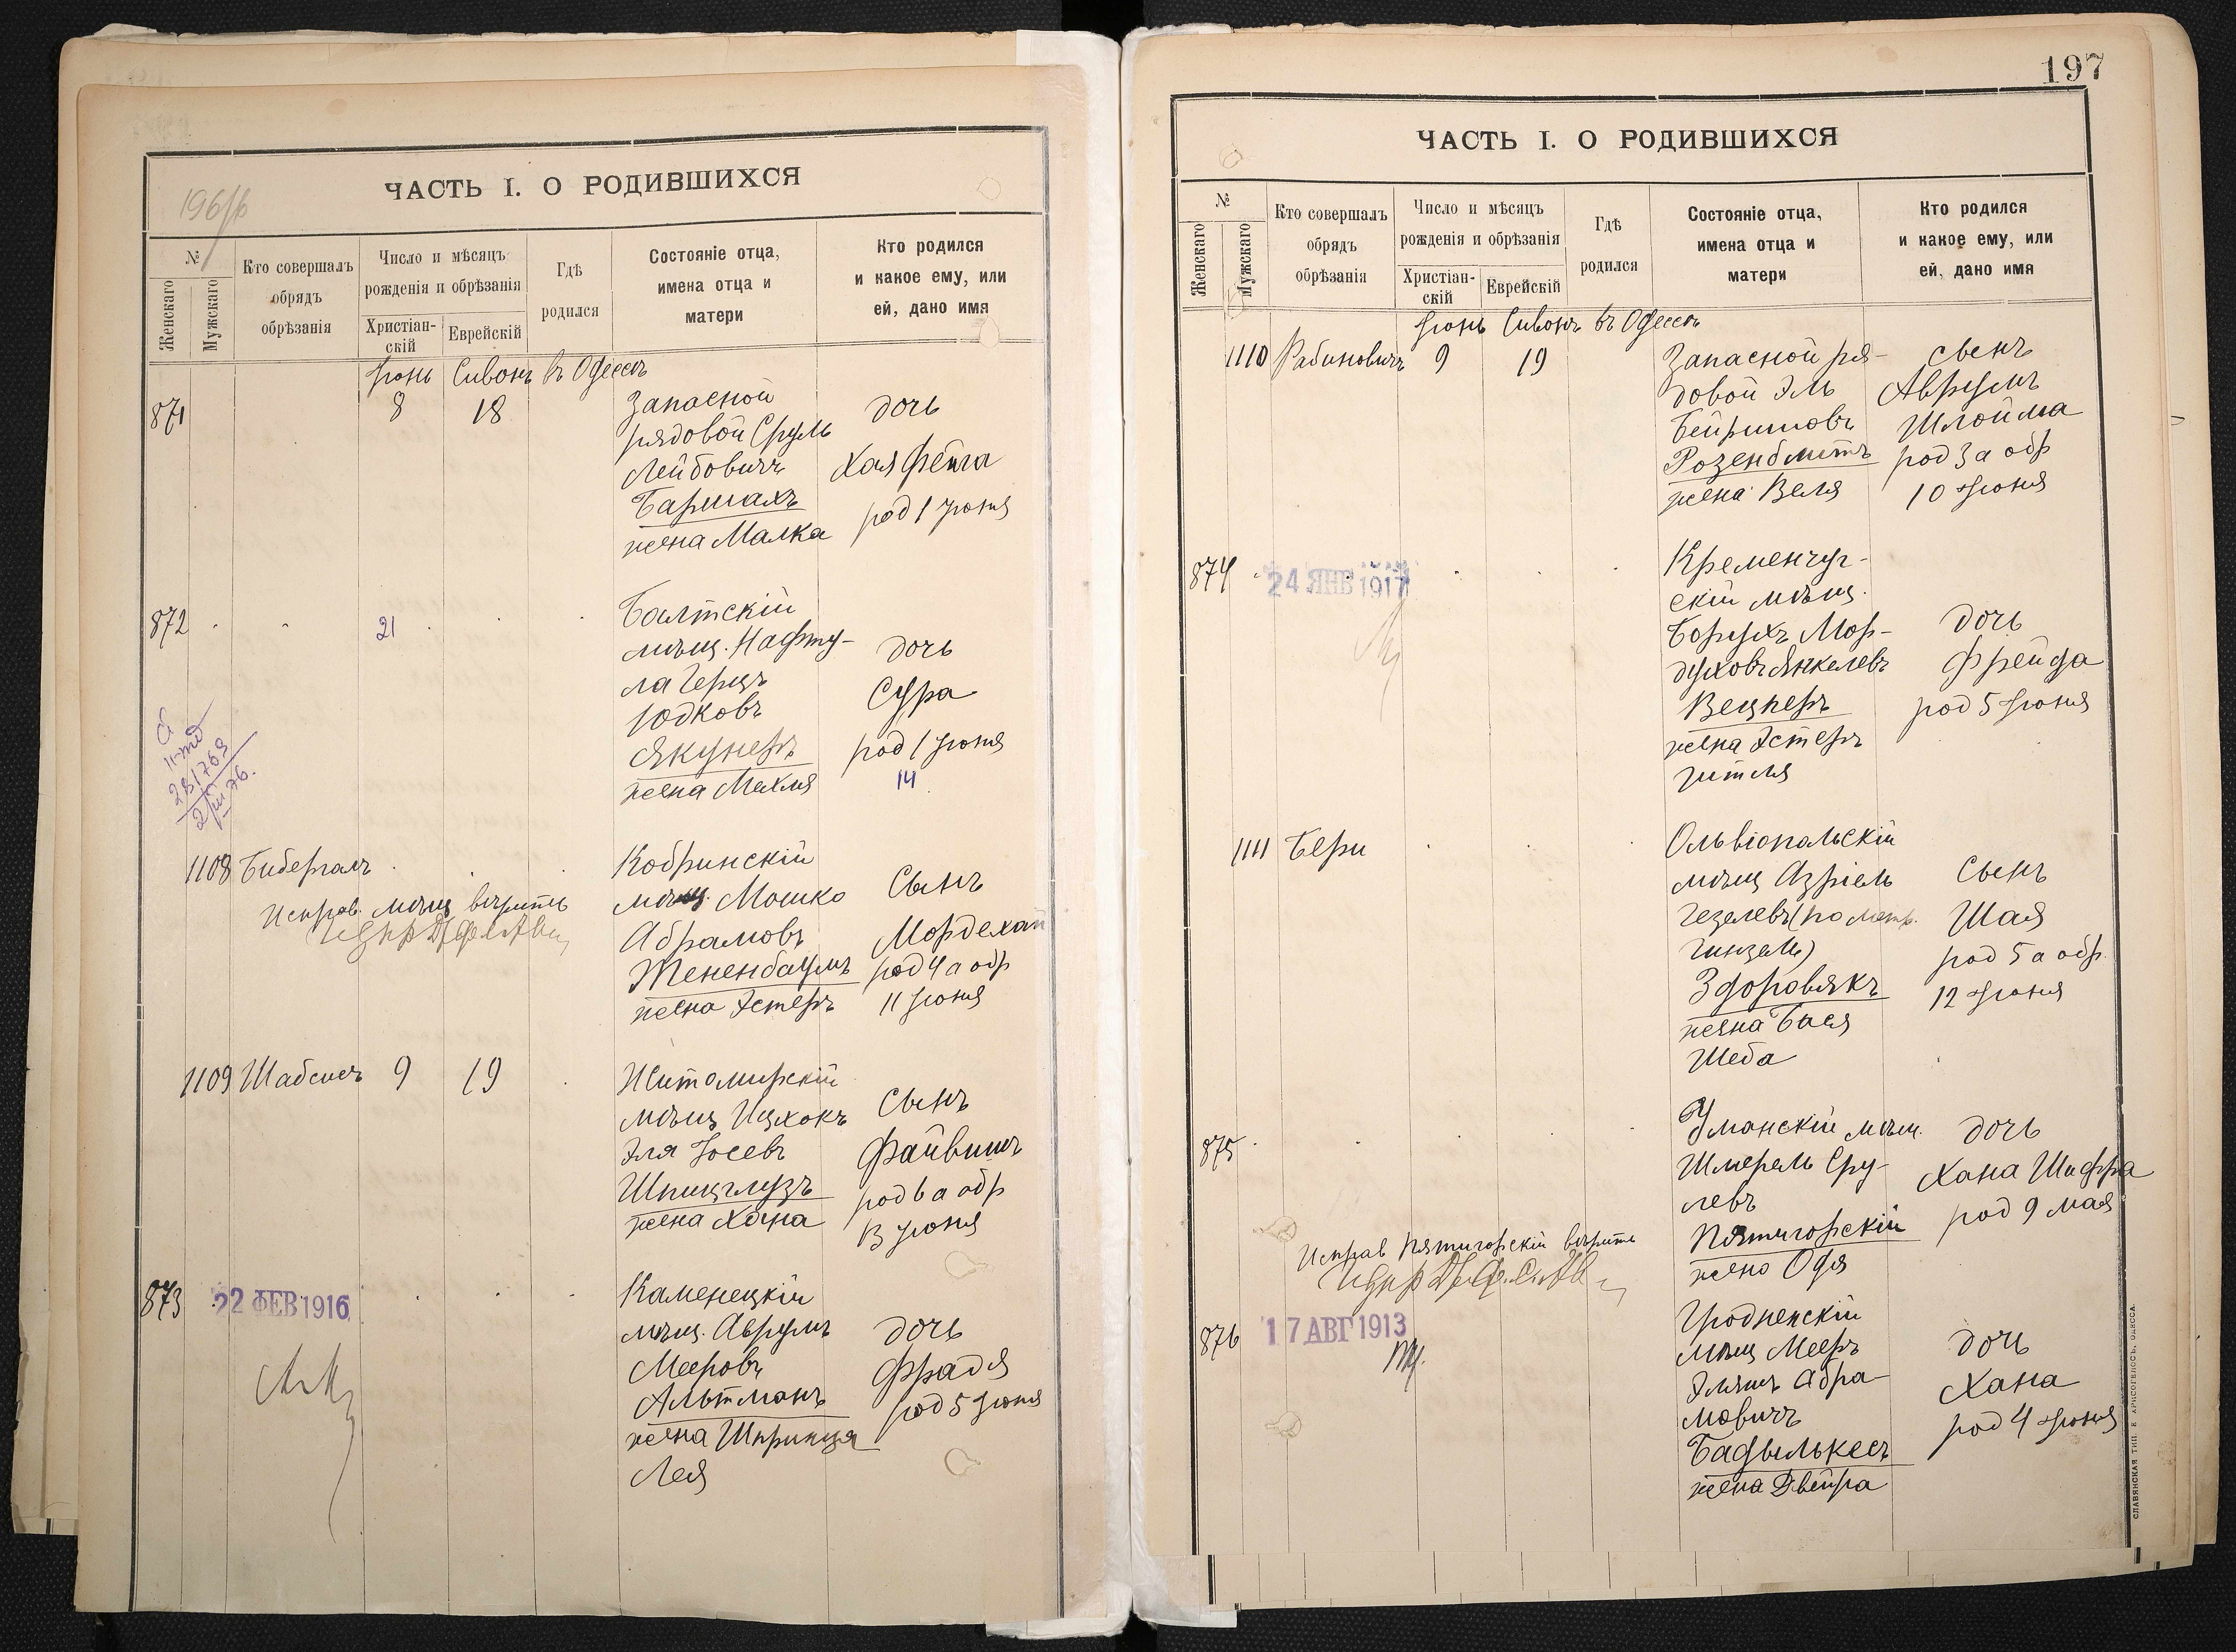 196/б
ЧАСТЬ I. О РОДИВШИХСЯ
№
Женскаго
Мужскаго
Кто совершалъ
обрядъ
обрѣзанія
Число и мѣсяцъ
рожденія и обрѣзанія
Христіан-
скій
Еврейскій
Гдѣ
родился
Состояніе отца,
имена отца и
матери
Кто родился
и какое ему, или
ей, дано имя
Іюнь Сивонъ въ Одессѣ
871 8 18
Запасной
рядовой Сруль
Лейбовичъ
Баршахъ
жена Малка
дочь
Хая Фейга
род 1 Іюня
872 21
Балтскій
мѣщ. Нафту-
ла Герцъ
Юдковъ
Якунеръ
жена Махля
дочь
Сура
род 1 Іюня
14
1108 Бибергалъ
Исправ. мѣщ вѣрить
Кобринскій
мѣщ. Мошко
Абрамовъ
Тененбаумъ
жена Эстеръ
Сынъ
Мордехай
род 4 а обр
11 Іюня
1109 Шабсисъ 9 19
Житомирскій
мѣщ Ицхокъ
Эля Іосевъ
Шпицглузъ
жена Хана
Сынъ
Файвишъ
род 6 а обр
13 Іюня
873 22 ФЕВ 1916
Каменецкій
мѣщ. Аврумъ
Мееровъ
Альтманъ
жена Шпринця
Лея
дочь
Фрадя
род 5 Іюня
197
ЧАСТЬ I. О РОДИВШИХСЯ
№
Женскаго
Мужскаго
Кто совершалъ
обрядъ
обрѣзанія
Число и мѣсяцъ
рожденія и обрѣзанія
Христіан-
скій
Еврейскій
Гдѣ
родился
Состояніе отца,
имена отца и
матери
Кто родился
и какое ему, или
ей, дано имя
Іюнь Сивонъ въ Одессѣ
1110 Рабиновичъ 9 19
Запасной ря-
довой Эль
Бейришовъ
Розенблитъ
жена Веля
сынъ
Аврумъ
Шлойма
род 3 а обр
10 Іюня
874 24 ЯНВ 1917
Кременчуг-
скій мѣщ.
Борухъ Мор-
духовъ Янкелевъ
Вецнеръ
жена Эстеръ
Гитля
дочь
Фрейда
род 5 Іюня
1111 Бери
Ольвіопальскій
мѣщ Азріель
Гезелевъ (по метр.
Гинзель)
Здоровякъ
жена Бася
Шеба
Сынъ
Шая
род 5 а обр.
12 Іюня
875
Исправ Пятигорскій вѣрить
Уманскій мѣщ.
Шмерель Сру-
левъ
Пятигорскій
жена Одя
дочь
Хана Шифра
род 9 мая
876 17 АВГ 1913
Гродненскій
мѣщ Мееръ
Эльяшъ Абра-
мовичъ
Бадылькесъ
жена Двейра
дочь
Хана
род 4 Іюня
СЛАВЯНСКАЯ ТИП. Е. ХРИСОГЕЛОСЪ, ОДЕССА.